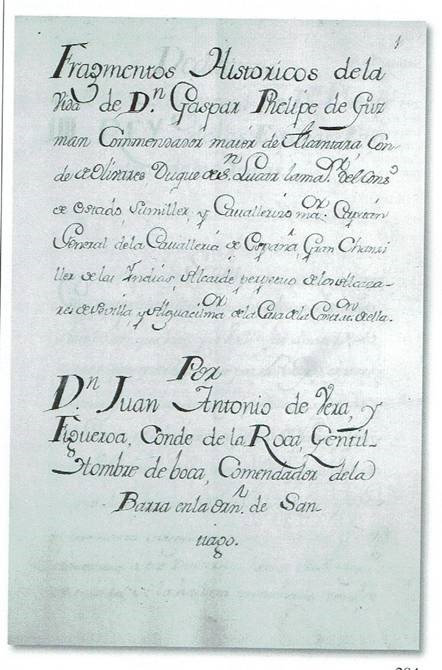 1
Fragmentos Historicos de la
Vida de D.n Gaspar Phelipe de Guz
man Commendador maior de Alcantara Con
de de Olivares Duque de S.n Lucar la ma.or del Cons.o
de estado, Sumiller, y Cavallerizo ma.or Capitan
General de la Cavalleria de España, Gran Chansi
ller de las Yndias, Alcaide perpetuo de los Alcaza-
res de Sevilla y Alguacil ma.or de la Casa de la Contt.on de ella.
Por
D.n Juan Antonio de Vera, y
Figueroa, Conde de la Roca, Gentil-
Hombre de boca, Comendador de la
Barra en la orn. de San-
tiago.